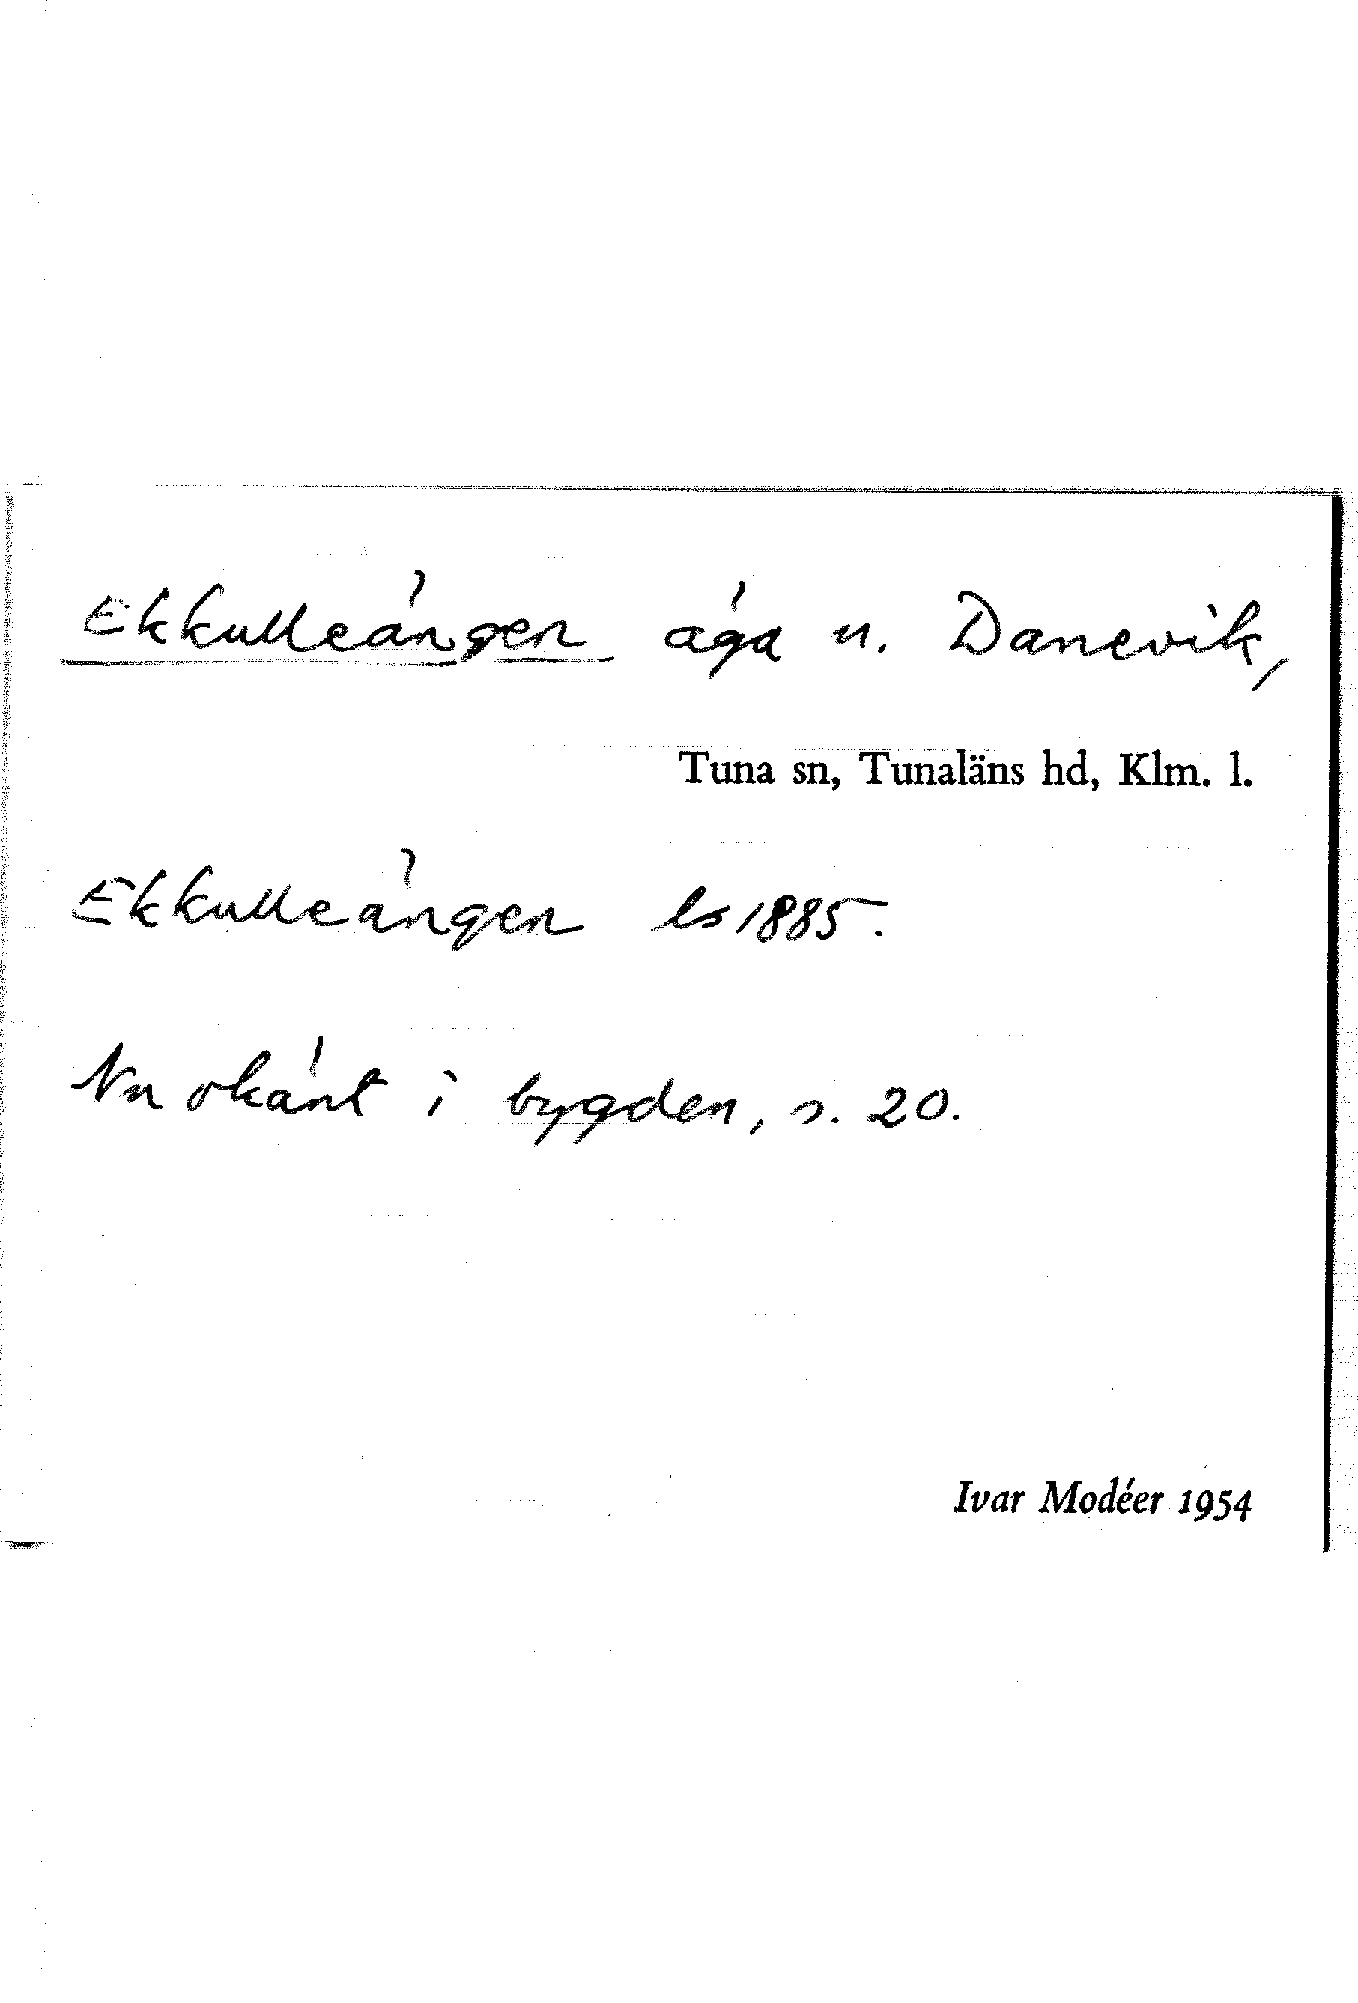 Ekkulleängen äga u. Danevik,
Tuna sn, Tunaläns hd, Klm. l.
Ekkulleängen ls 1885.
Nu okänt i bygden, s. 20.
Ivar Modéer 1954